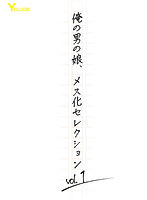 俺の男の娘、メス化セレクション
vol.1